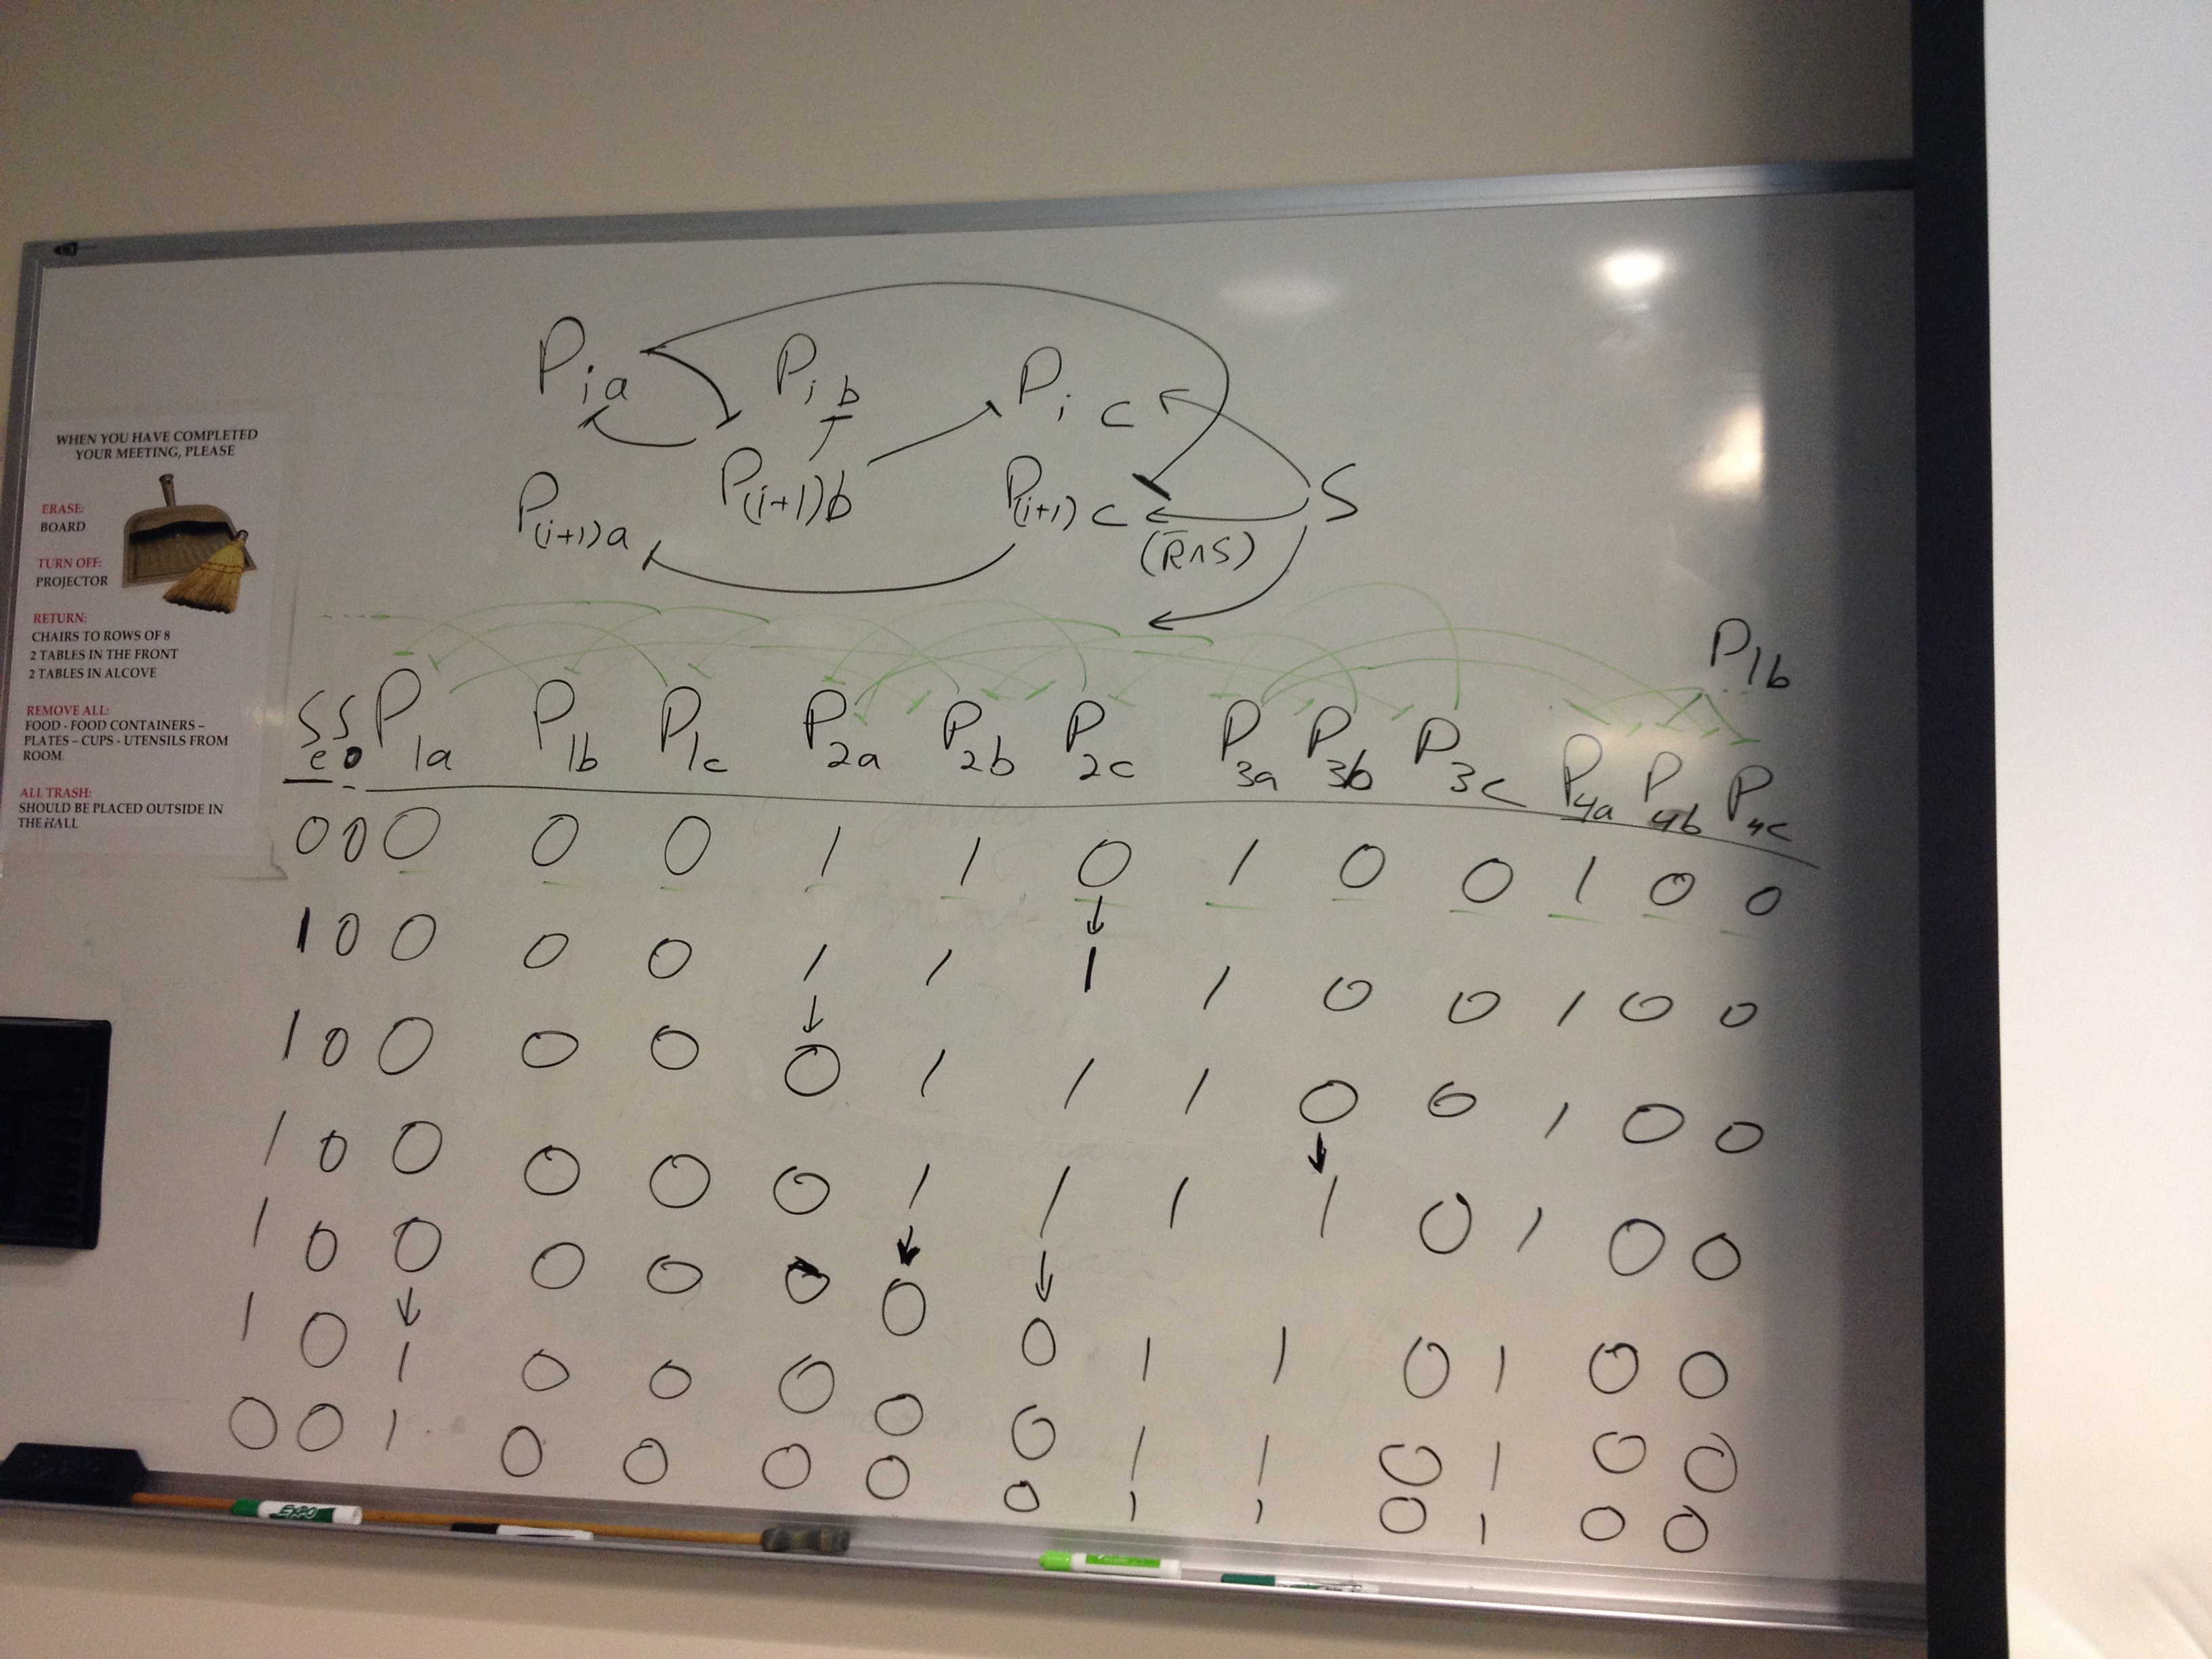 WHEN YOU HAVE COMPLETED
YOUR MEETING, PLEASE
ERASE:
BOARD
TURN OFF:
PROJECTOR
RETURN:
CHAIRS TO ROWS OF 8
2 TABLES IN THE FRONT
2 TABLES IN ALCOVE
REMOVE ALL:
FOOD - FOOD CONTAINERS –
PLATES – CUPS - UTENSILS FROM
ROOM
ALL TRASH:
SHOULD BE PLACED OUTSIDE IN
THE HALL
Pia Pib Pic
P(i+1)a P(i+1)b P(i+1)c S
(R̅∧S)
P1b
Se So P1a P1b P1c P2a P2b P2c P3a P3b P3c P4a P4b P4c
0 0 0 0 0 1 1 0 1 0 0 1 0 0
1 0 0 0 0 1 1 1 1 0 0 1 0 0
1 0 0 0 0 0 1 1 1 0 0 1 0 0
1 0 0 0 0 0 1 1 1 1 0 1 0 0
1 0 0 0 0 0 0 0 1 1 0 1 0 0
1 0 1 0 0 0 0 0 1 1 0 1 0 0
0 0 1 0 0 0 0 0 1 1 0 1 0 0
EXPO